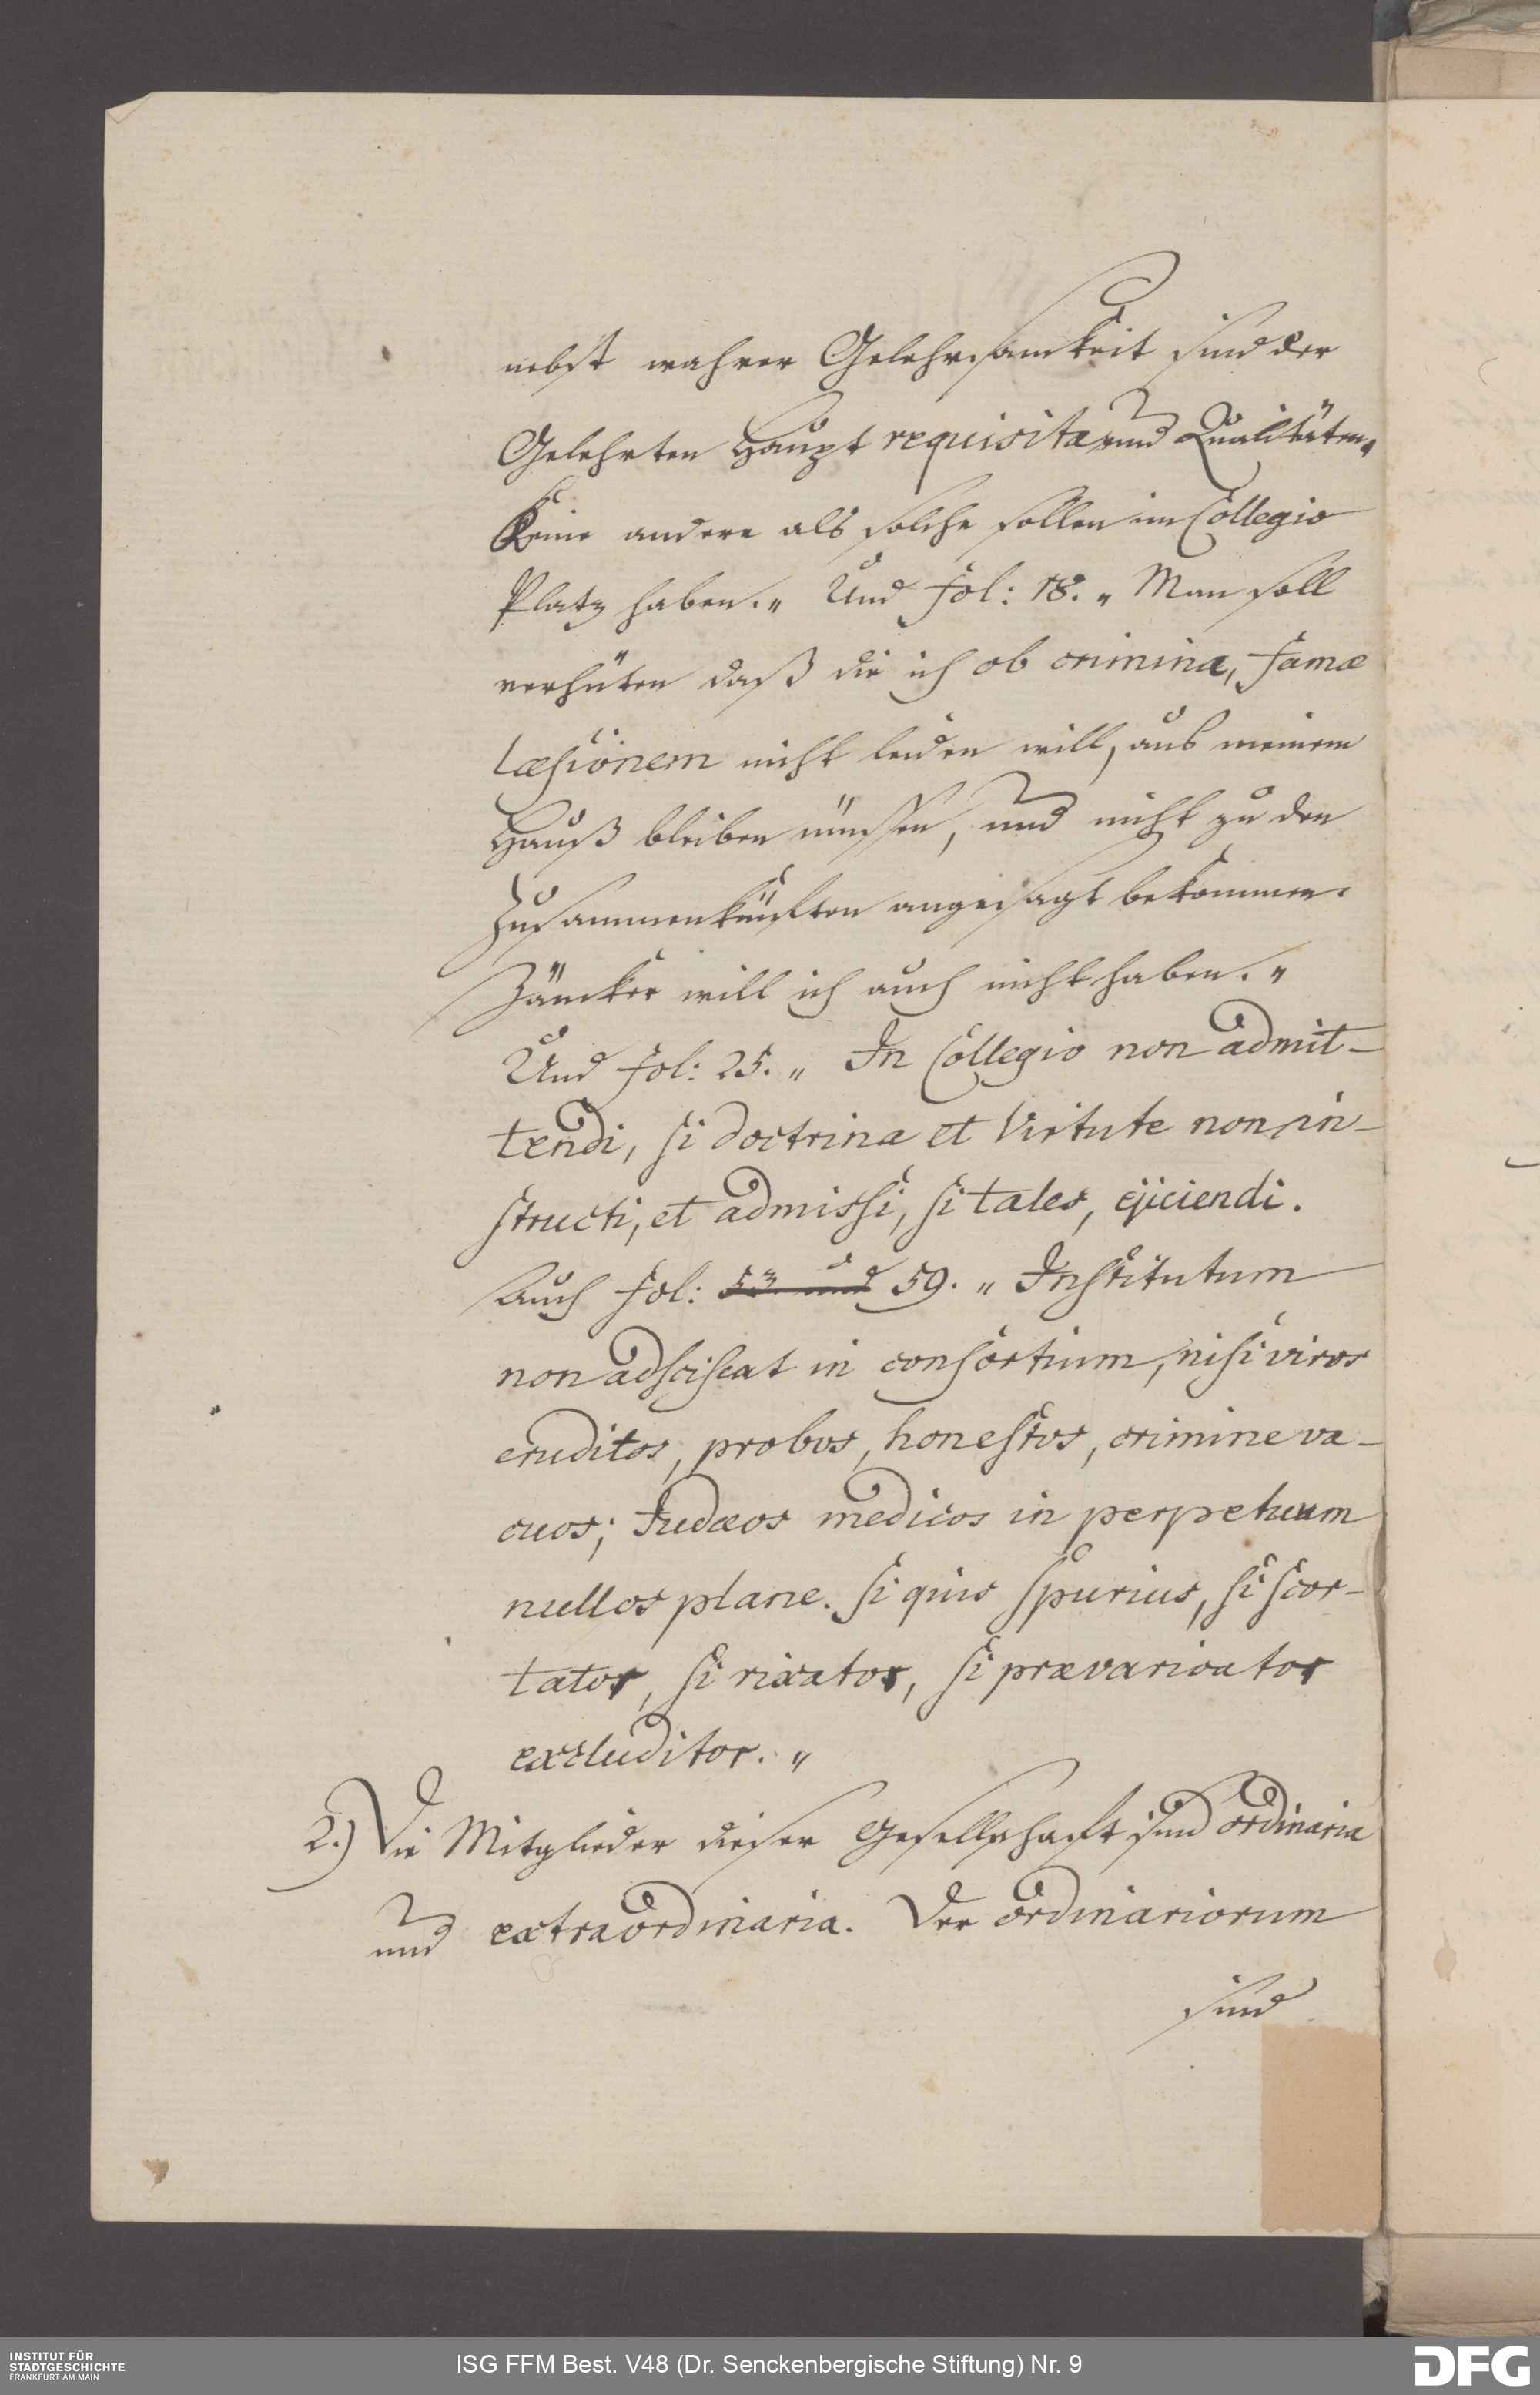 nebst wahrer Gelehrsamkeit sind der
Gelehrten Haupt requisita und Qualitäten.
Keine andere als solche sollen im Collegio
Platz haben.„ Und fol: 18. „ Man soll
verhüten daß die ich ob crimina, famæ
læsionem nicht leiden will, aus meinem
Hauß bleiben müssen, und nicht zu den
Zusammenkünften angesagt bekommen.
Zäncker will ich auch nicht haben. „
Und fol: 25. „ In Collegio non admit-
tendi, si doctrina et Virtute non in-
structi, et admissi, si tales, ejiciendi.
Auch fol: 53 und 59. „ Institutum
non adsciscat in consortium, nisi viros
eruditos, probos, honestos, crimine va-
cuos; Judæos medicos in perpetuum
nullos plane. Si quis spurius, si scor-
tator, si rixator, si prævaricator
excluditor. „
2.) Die Mitglieder dieser Gesellschaft sind ordinaria
und extraordinaria. Der ordinariorum
sind
INSTITUT FÜR
STADTGESCHICHTE
FRANKFURT AM MAIN
ISG FFM Best. V48 (Dr. Senckenbergische Stiftung) Nr. 9
DFG